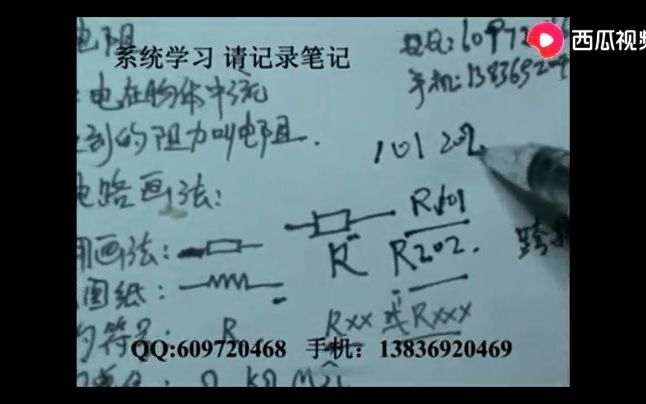 电阻
系统学习 请记录笔记
西瓜视频
电在物体中流
到的阻力叫电阻.
101 202
电路画法:
R101
R R202.
用画法:
图纸:
符号: R Rxx 或Rxxx
QQ:609720468 手机: 13836920469
Ω KΩ MΩ